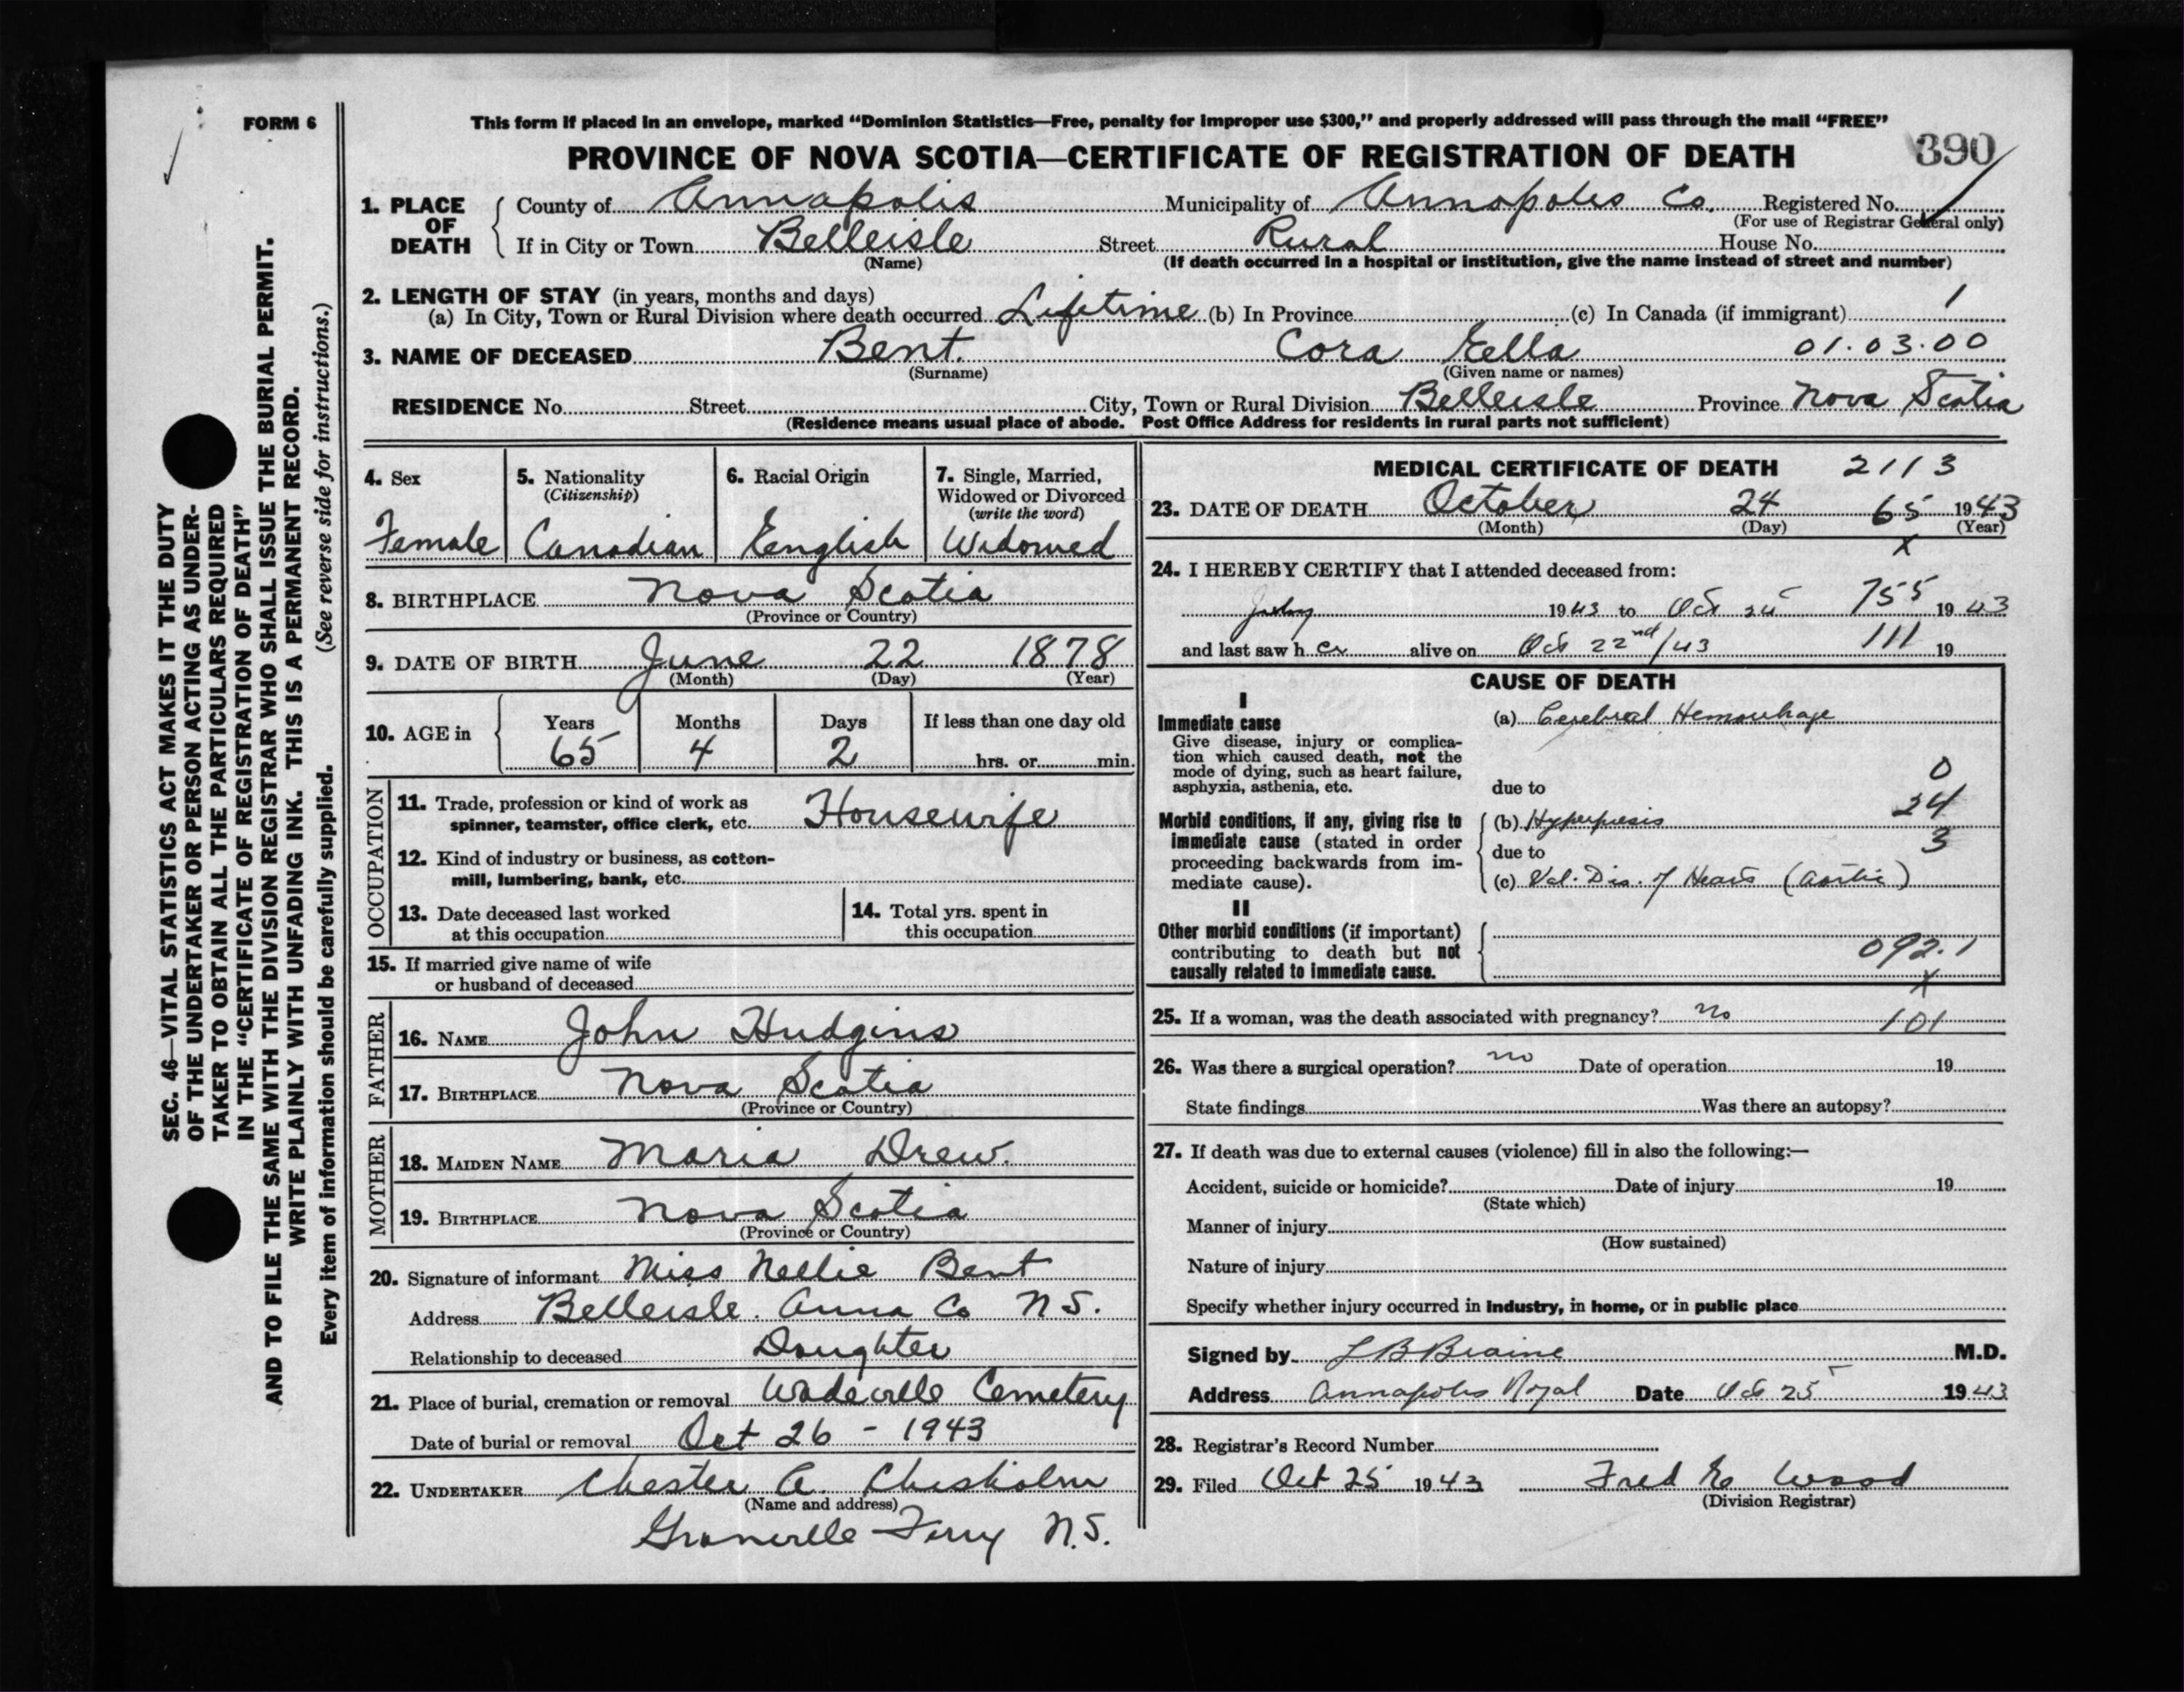 FORM 6
This form if placed in an envelope, marked “Dominion Statistics—Free, penalty for improper use $300,” and properly addressed will pass through the mail “FREE”
PROVINCE OF NOVA SCOTIA—CERTIFICATE OF REGISTRATION OF DEATH 390
1. PLACE OF DEATH
County of Annapolis Municipality of Annapolis Co. Registered No.
(For use of Registrar General only)
If in City or Town Belleisle Street Rural House No.
(Name) (If death occurred in a hospital or institution, give the name instead of street and number)
2. LENGTH OF STAY (in years, months and days)
(a) In City, Town or Rural Division where death occurred Lifetime (b) In Province (c) In Canada (if immigrant) 1
3. NAME OF DECEASED Bent. Cora Eella 01.03.00
(Surname) (Given name or names)
RESIDENCE No. Street City, Town or Rural Division Belleisle Province Nova Scotia
(Residence means usual place of abode. Post Office Address for residents in rural parts not sufficient)
4. Sex
Female
5. Nationality
(Citizenship)
Canadian
6. Racial Origin
English
7. Single, Married,
Widowed or Divorced
(write the word)
Widowed
8. BIRTHPLACE Nova Scotia
(Province or Country)
9. DATE OF BIRTH June 22 1878
(Month) (Day) (Year)
10. AGE in
Years Months Days If less than one day old
65 4 2 hrs. or min.
OCCUPATION
11. Trade, profession or kind of work as
spinner, teamster, office clerk, etc. Housewife
12. Kind of industry or business, as cotton-
mill, lumbering, bank, etc.
13. Date deceased last worked
at this occupation
14. Total yrs. spent in
this occupation
15. If married give name of wife
or husband of deceased
FATHER
16. NAME John Hudgins
17. BIRTHPLACE Nova Scotia
(Province or Country)
MOTHER
18. MAIDEN NAME Maria Drew.
19. BIRTHPLACE Nova Scotia
(Province or Country)
20. Signature of informant Miss Nellie Bent
Address Belleisle. Anna Co N S.
Relationship to deceased Daughter
21. Place of burial, cremation or removal Wadeville Cemetery
Date of burial or removal Oct 26 - 1943
22. UNDERTAKER Chester A. Chisholm
(Name and address)
Granville Ferry N.S.
MEDICAL CERTIFICATE OF DEATH 2113
23. DATE OF DEATH October 24 65 1943
(Month) (Day) (Year)
x
24. I HEREBY CERTIFY that I attended deceased from:
1943 to Oct 24 755 1943
and last saw h er alive on Oct 22nd/43 111 19
CAUSE OF DEATH
I
Immediate cause
Give disease, injury or complica-
tion which caused death, not the
mode of dying, such as heart failure,
asphyxia, asthenia, etc.
(a) Cerebral Hemorrhage
0
due to
24
Morbid conditions, if any, giving rise to
immediate cause (stated in order
proceeding backwards from im-
mediate cause).
(b) Hyperpiesis
3
due to
(c) Val. Dis. of Heart (Aortic)
II
Other morbid conditions (if important)
contributing to death but not
causally related to immediate cause.
092.1
x
25. If a woman, was the death associated with pregnancy? no 101
26. Was there a surgical operation? no Date of operation 19
State findings Was there an autopsy?
27. If death was due to external causes (violence) fill in also the following:—
Accident, suicide or homicide? Date of injury 19
(State which)
Manner of injury
(How sustained)
Nature of injury
Specify whether injury occurred in industry, in home, or in public place
Signed by L B Braine M.D.
Address Annapolis Royal Date Oct 25 1943
28. Registrar's Record Number
29. Filed Oct 25 1943 Fred E Wood
(Division Registrar)
SEC. 46—VITAL STATISTICS ACT MAKES IT THE DUTY
OF THE UNDERTAKER OR PERSON ACTING AS UNDER-
TAKER TO OBTAIN ALL THE PARTICULARS REQUIRED
IN THE “CERTIFICATE OF REGISTRATION OF DEATH”
AND TO FILE THE SAME WITH THE DIVISION REGISTRAR WHO SHALL ISSUE THE BURIAL PERMIT.
WRITE PLAINLY WITH UNFADING INK. THIS IS A PERMANENT RECORD.
Every item of information should be carefully supplied. (See reverse side for instructions.)